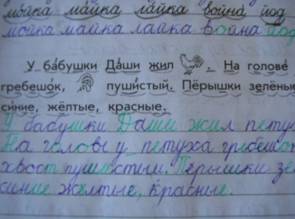 мойка майка лайка война йод
мойка майка лайка война йод
У бабушки Даши жил . На голове
гребешок, пушистый. Пёрышки зелёны
синие, жёлтые, красные.
У бабушки Даши жил пету
На голове у петуха гребешок
хвост пушистый. Пёрышки зе
синие жёлтые, красные.